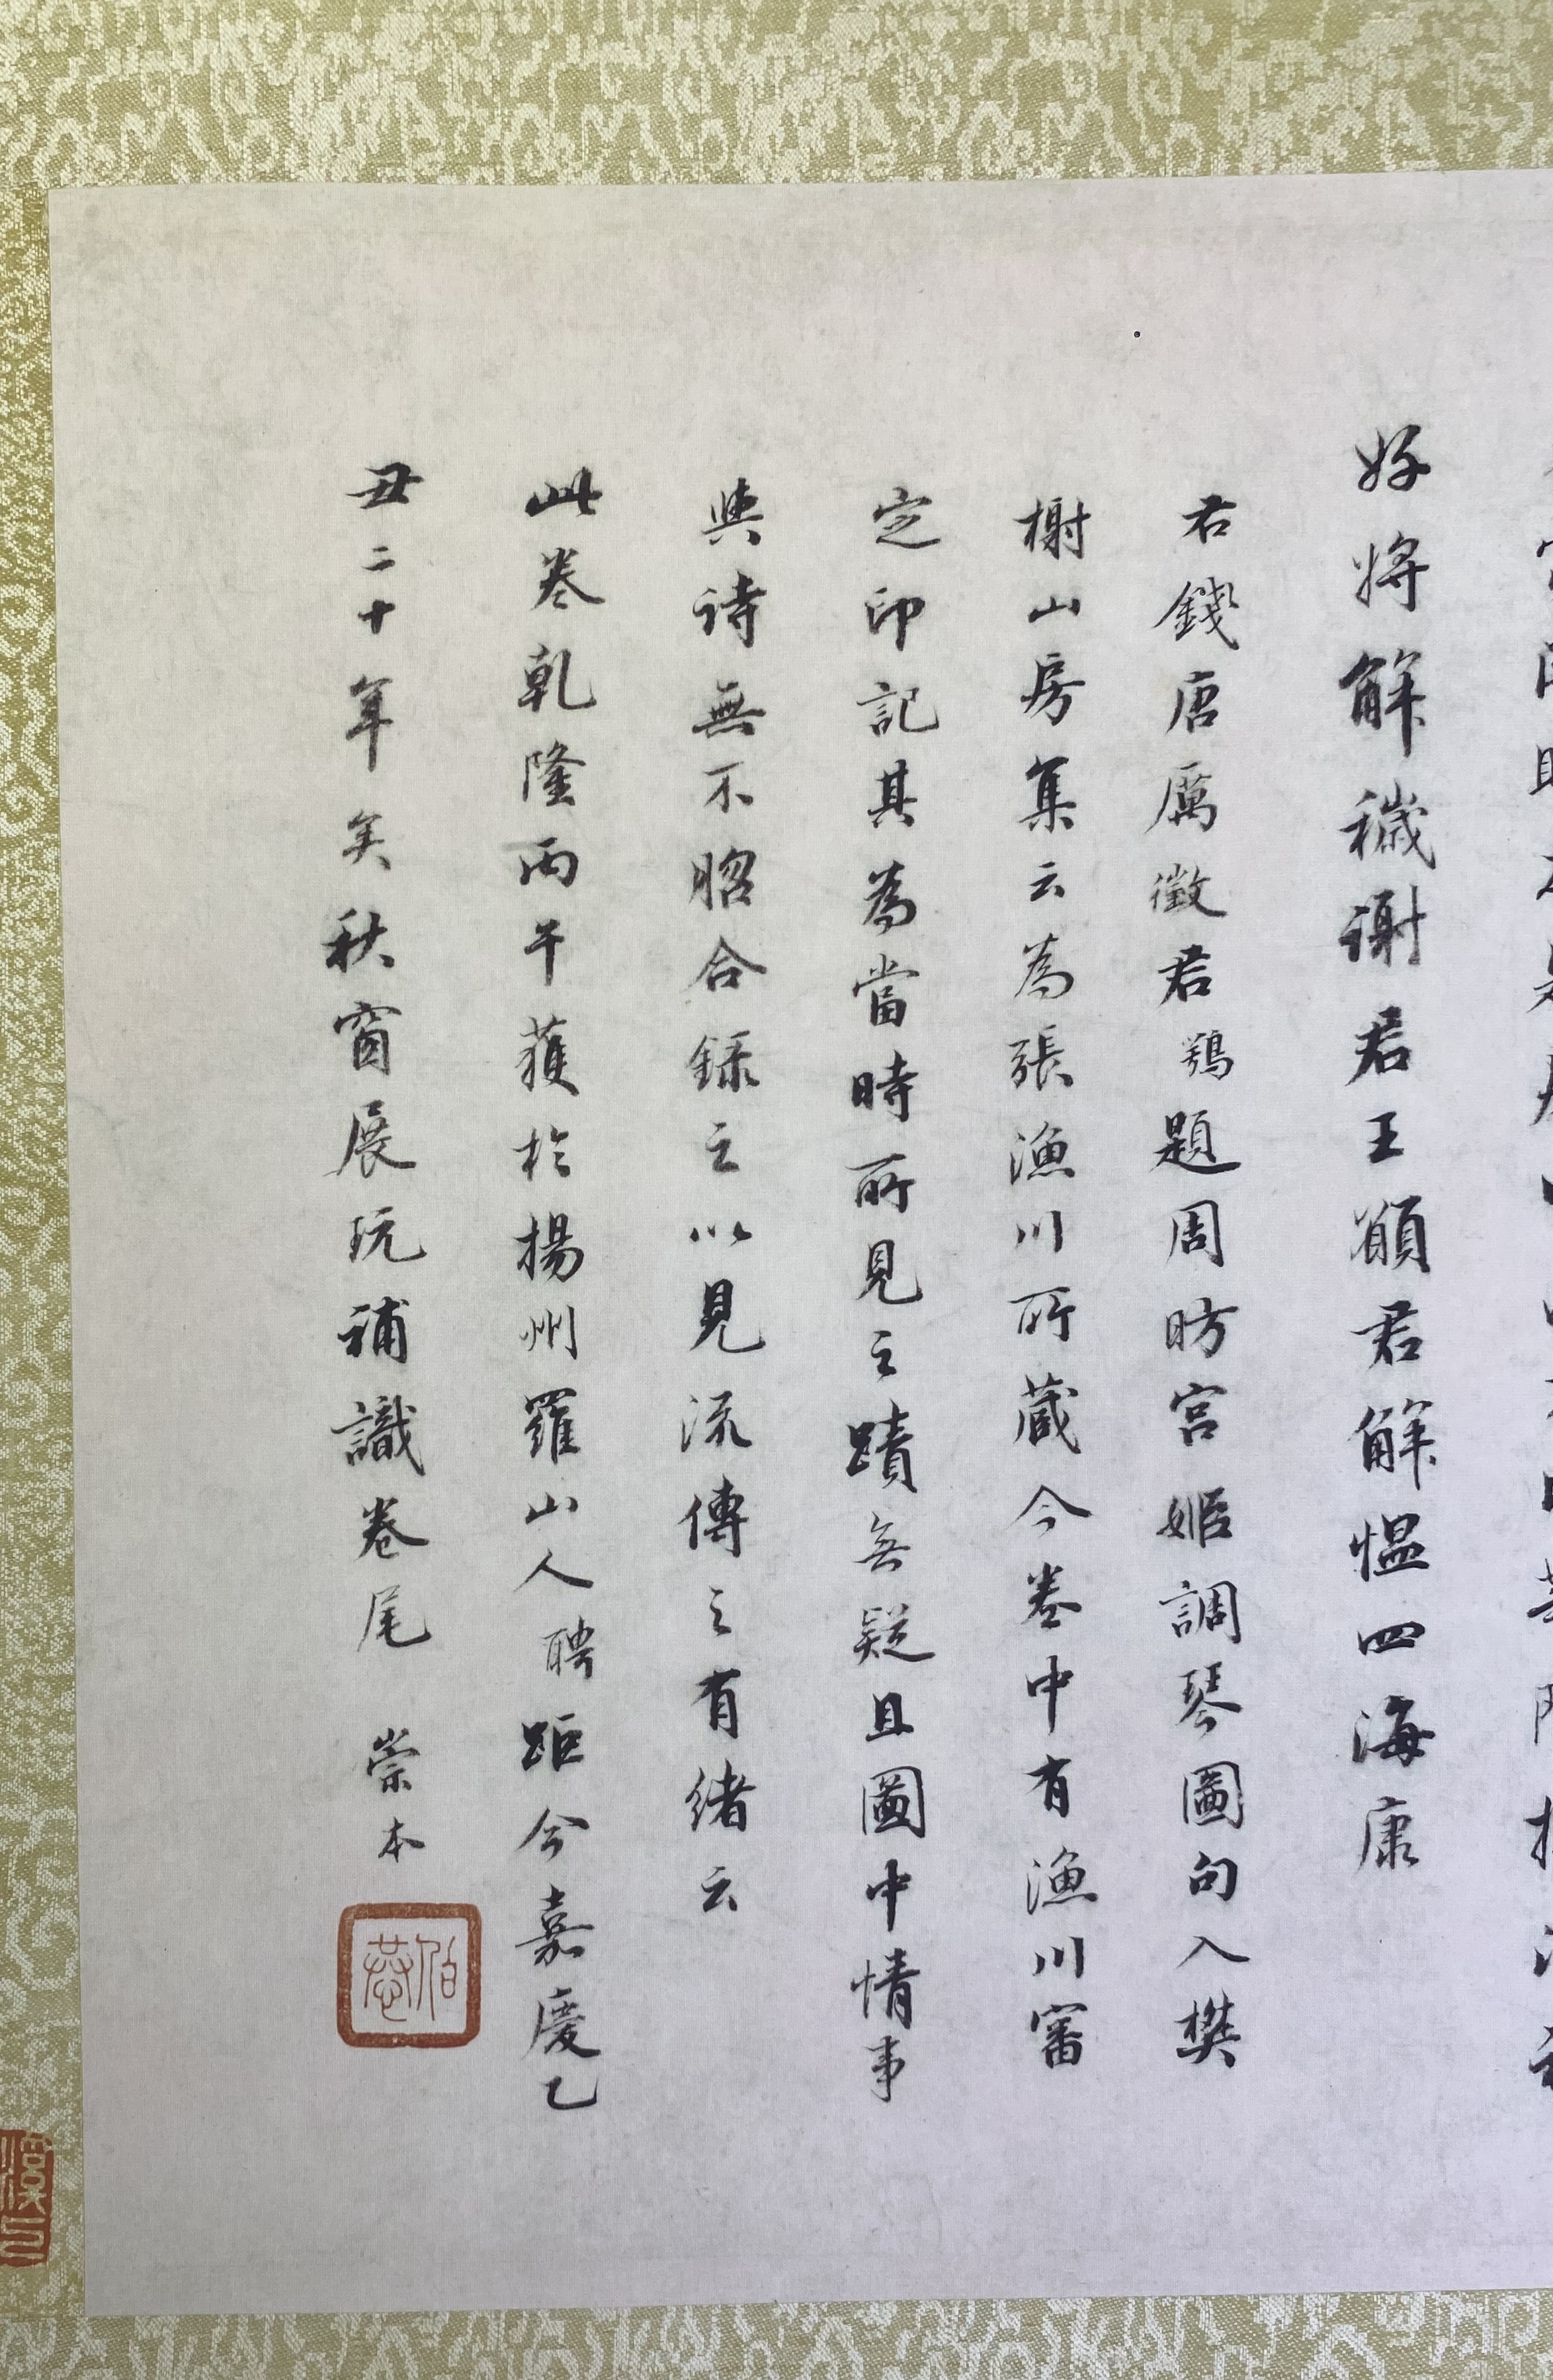 好將解穢謝君王願君解愠四海康
右錢唐厲徵君鶚題周昉宮姬調琴圖句入樊
榭山房集云為張漁川所蔵今卷中有漁川審
定印記其為當時所見之蹟無疑且圖中情事
與詩無不昭合録之以見流傳之有緒云
此卷乾隆丙午獲於揚州羅山人聘距今嘉慶乙
丑二十年矣秋窗展玩補識卷尾 崇本